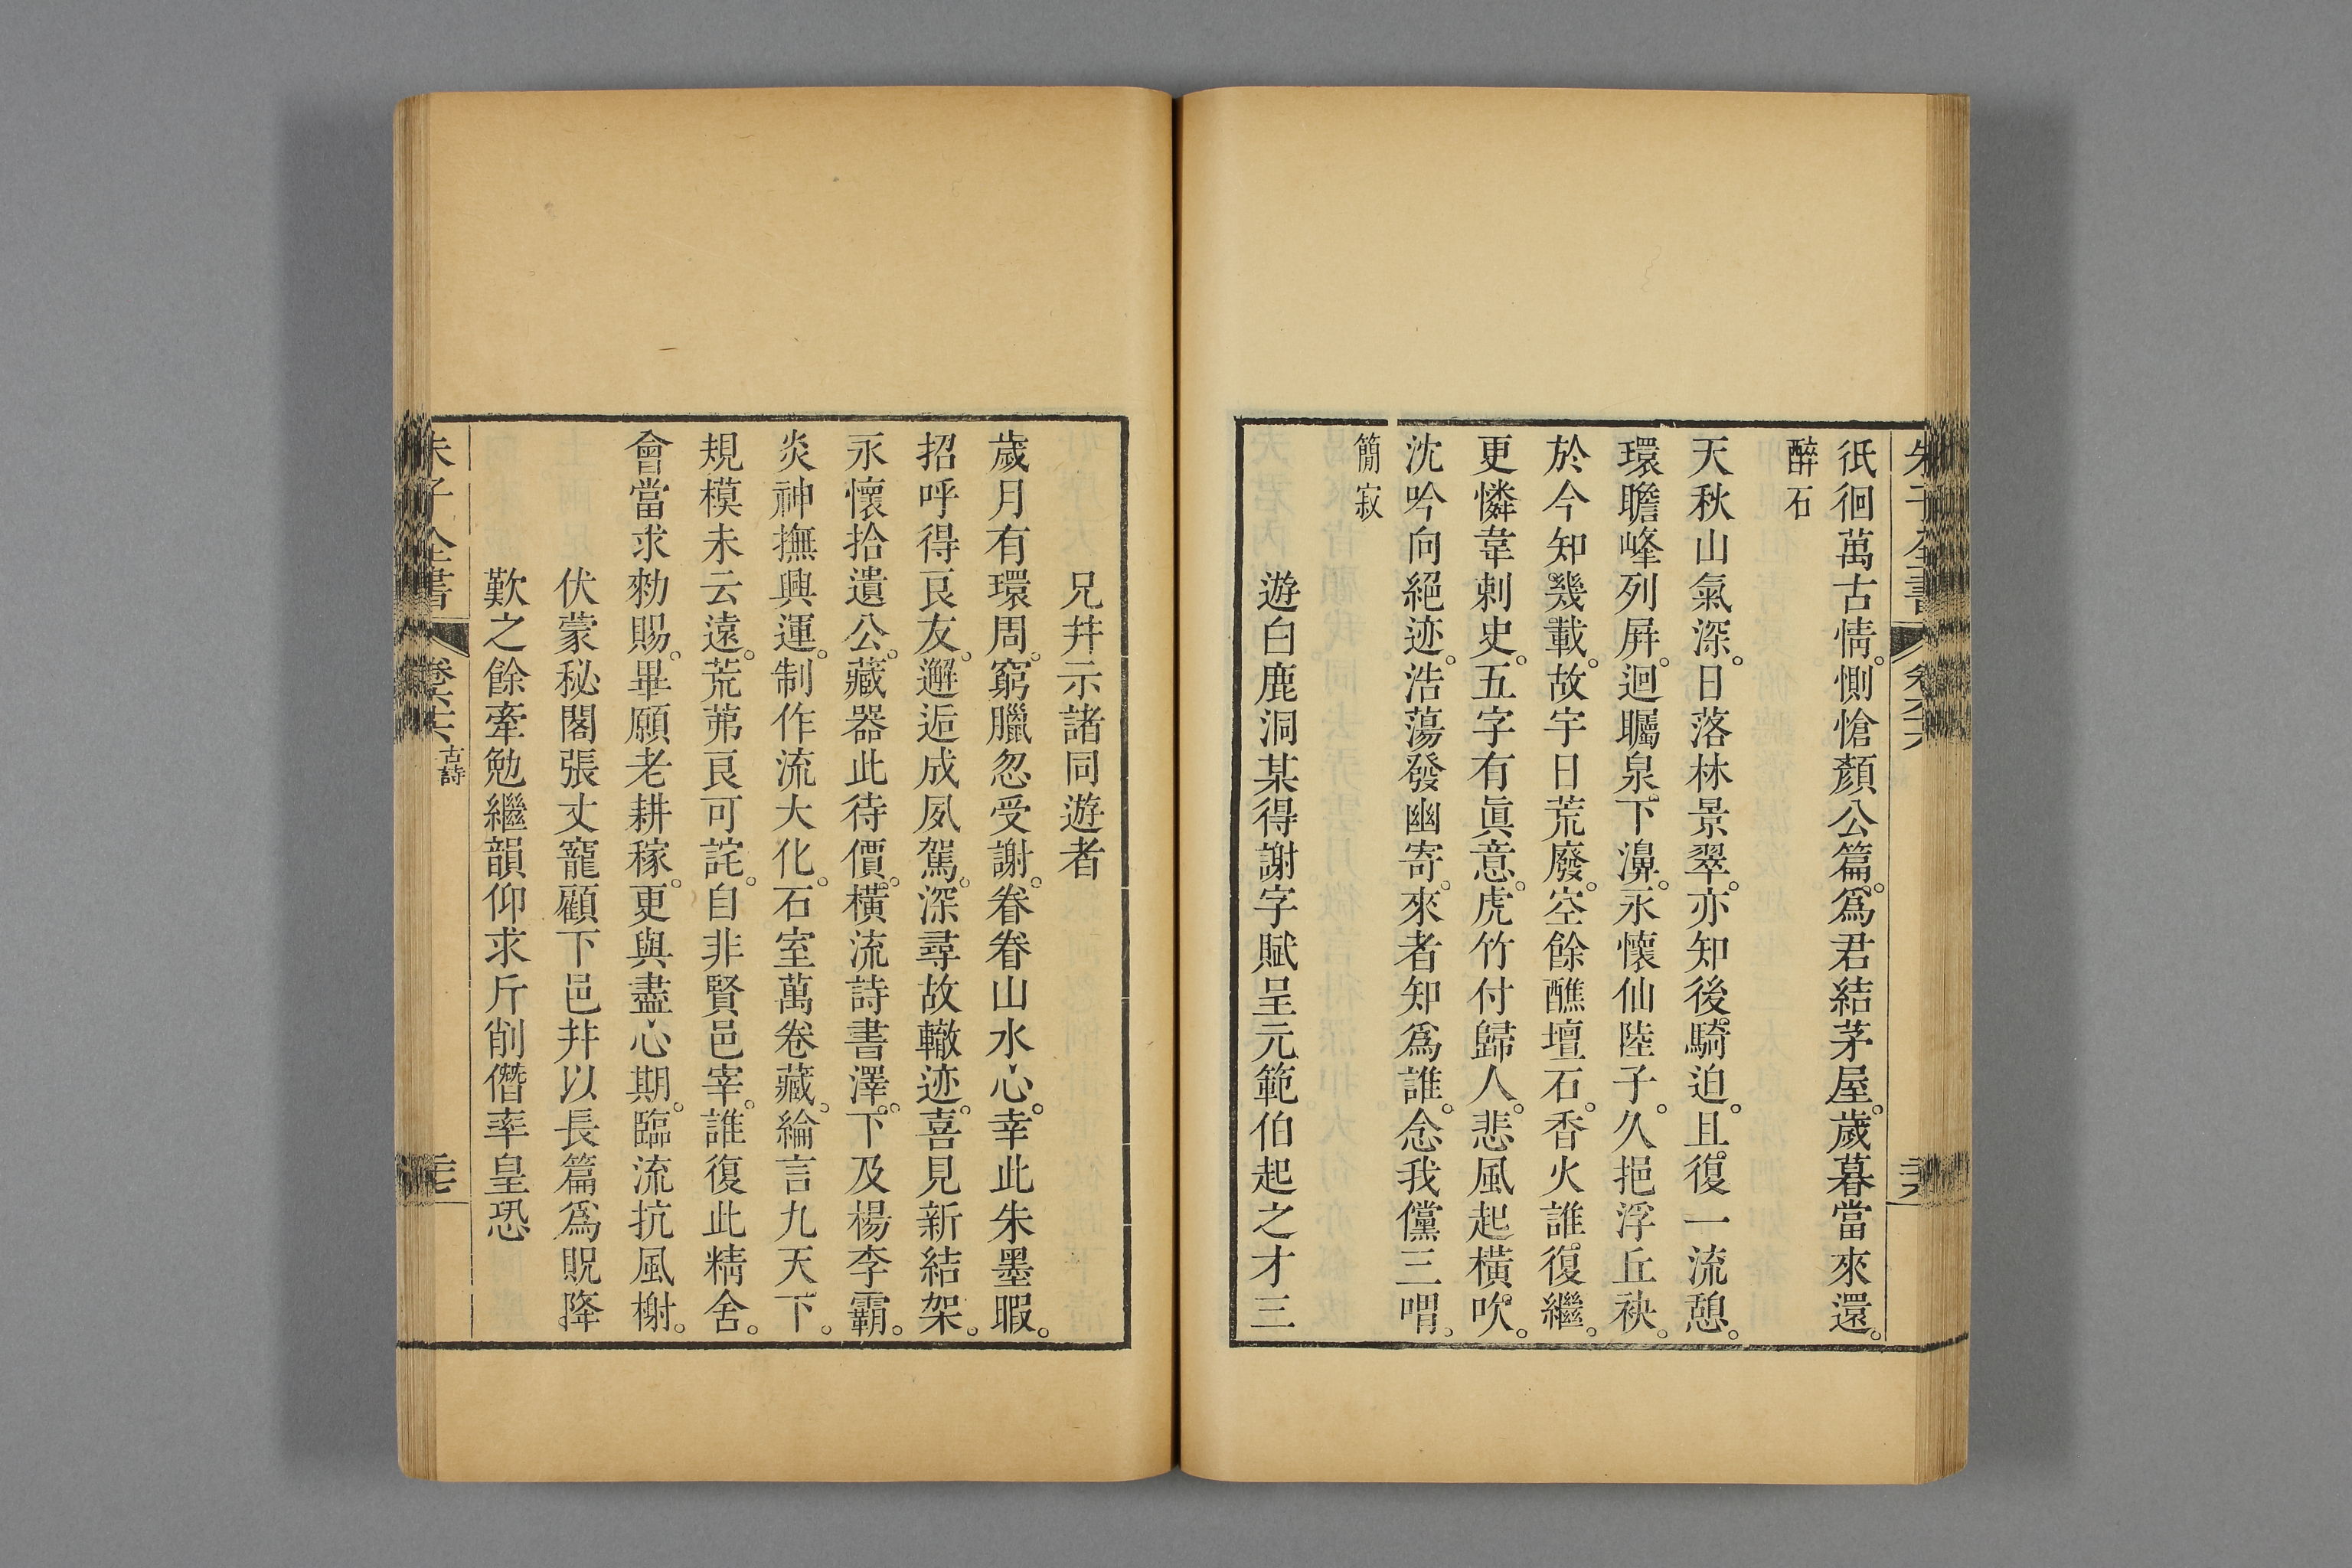 朱子全書 卷六十六 三十六
彽徊萬古情。惻愴顏公篇。爲君結茅屋。歲暮當來還。
醉石
天秋山氣深。日落林景翠。亦知後騎迫。且復一流憩。
環瞻峰列屛。迴矚泉下濞。永懷仙陸子。久挹浮丘袂。
於今知幾載。故宇日荒廢。空餘醮壇石。香火誰復繼。
更憐韋刺史。五字有眞意。虎竹付歸人。悲風起橫吹。
沈吟向絕迹。浩蕩發幽寄。來者知爲誰。念我儻三喟。
簡寂
遊白鹿洞某得謝字賦呈元範伯起之才三
兄幷示諸同遊者
歲月有環周。窮臘忽受謝。眷眷山水心。幸此朱墨暇。
招呼得良友。邂逅成夙駕。深尋故轍迹。喜見新結架。
永懷拾遺公。藏器此待價。橫流詩書澤。下及楊李霸。
炎神撫興運。制作流大化。石室萬卷藏。綸言九天下。
規模未云遠。荒茀良可詫。自非賢邑宰。誰復此精舍。
會當求勑賜。畢願老耕稼。更與盡心期。臨流抗風榭。
伏蒙秘閣張丈寵顧下邑幷以長篇爲貺降
歎之餘牽勉繼韻仰求斤削僭率皇恐
朱子全書 卷六十六 古詩 三十七